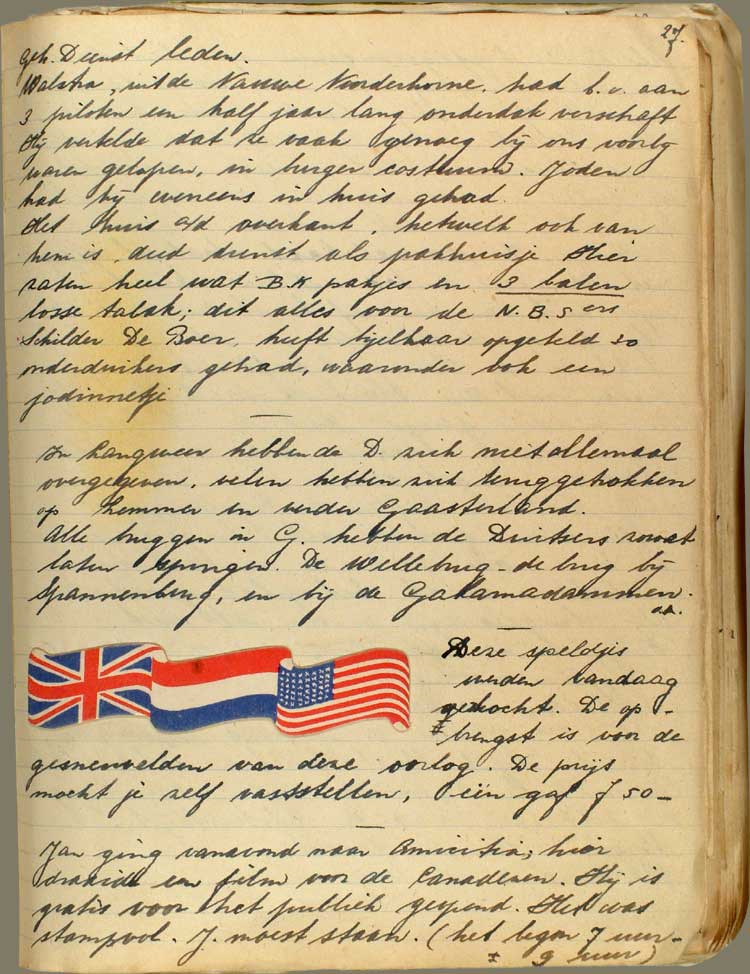 27.
geh. Dienst leden.
Walstra, uit de Nauwe Noorderhorne, had b.v. aan
3 piloten een half jaar lang onderdak verschaft
Hij vertelde dat ze vaak genoeg bij ons voorbij
waren gelopen, in burger costuum. Joden
had hij eveneens in huis gehad.
Het huis a/d overkant, hetwelk ook van
hem is, deed dienst als pakhuisje Hier
zaten heel wat B.K pakjes en 3 balen
losse tabak; dit alles voor de N.B.Sers
Schilder De Boer, heeft bijelkaar opgeteld 30
onderduikers gehad, waaronder ook een
jodinnetje
In Langweer hebben de D. zich niet allemaal
overgegeven, velen hebben zich teruggetrokken
op Lemmer en verder Gaasterland.
Alle bruggen in G. hebben de Duitsers zowat
laten springen. De Wellebrug - de brug bij
Spannenburg, en bij de Galamadammen.
o.a.
Deze speldjes
werden vandaag
verkocht. De op-
brengst is voor de
gesneuvelden van deze oorlog. De prijs
mocht je zelf vaststellen, één gaf f 50-
Jan ging vanavond naar Amicitia; hier
draaide een film voor de Canadezen. Hij is
gratis voor het publiek geopend. Het was
stampvol. J. moest staan. (het begon 7 uur-
± 9 uur)